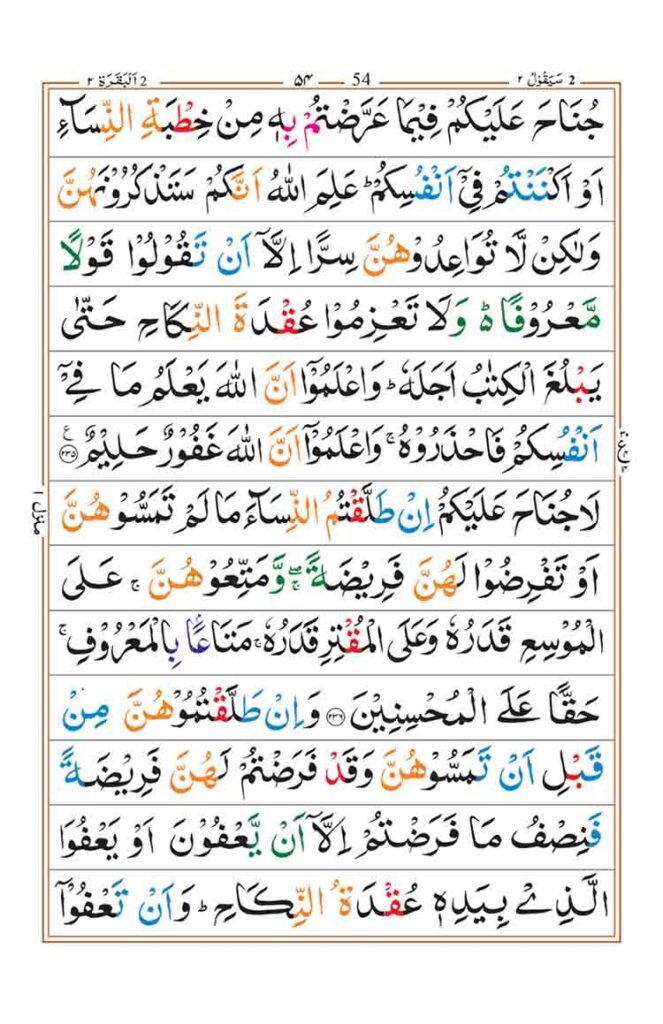 2 سَيَقُوْلُ ٢ 54 ۵۴ 2 اَلْبَقَرَة ٢
جُنَاحَ عَلَيْكُمْ فِيْمَا عَرَّضْتُمْ بِهٖ مِنْ خِطْبَةِ النِّسَآءِ
اَوْ اَكْنَنْتُمْ فِيْۤ اَنْفُسِكُمْ ؕ عَلِمَ اللّٰهُ اَنَّكُمْ سَتَذْكُرُوْنَهُنَّ
وَلٰكِنْ لَّا تُوَاعِدُوْهُنَّ سِرًّا اِلَّاۤ اَنْ تَقُوْلُوْا قَوْلًا
مَّعْرُوْفًا ؕ۬ وَلَا تَعْزِمُوْا عُقْدَةَ النِّكَاحِ حَتّٰى
يَبْلُغَ الْكِتٰبُ اَجَلَهٗ ؕ وَاعْلَمُوْۤا اَنَّ اللّٰهَ يَعْلَمُ مَا فِيْۤ
اَنْفُسِكُمْ فَاحْذَرُوْهُ ۚ وَاعْلَمُوْۤا اَنَّ اللّٰهَ غَفُوْرٌ حَلِيْمٌ ع ٢٣٥
لَا جُنَاحَ عَلَيْكُمْ اِنْ طَلَّقْتُمُ النِّسَآءَ مَا لَمْ تَمَسُّوْهُنَّ
منزل ١
اَوْ تَفْرِضُوْا لَهُنَّ فَرِيْضَةً ۖۚ وَّمَتِّعُوْهُنَّ ۚ عَلَى
الْمُوْسِعِ قَدَرُهٗ وَعَلَى الْمُقْتِرِ قَدَرُهٗ ۚ مَتَاعًۢا بِالْمَعْرُوْفِ ۚ
حَقًّا عَلَى الْمُحْسِنِيْنَ ٢٣٦ وَاِنْ طَلَّقْتُمُوْهُنَّ مِنْ
قَبْلِ اَنْ تَمَسُّوْهُنَّ وَقَدْ فَرَضْتُمْ لَهُنَّ فَرِيْضَةً
فَنِصْفُ مَا فَرَضْتُمْ اِلَّاۤ اَنْ يَّعْفُوْنَ اَوْ يَعْفُوَا
الَّذِيْ بِيَدِهٖ عُقْدَةُ النِّكَاحِ ؕ وَاَنْ تَعْفُوْۤا